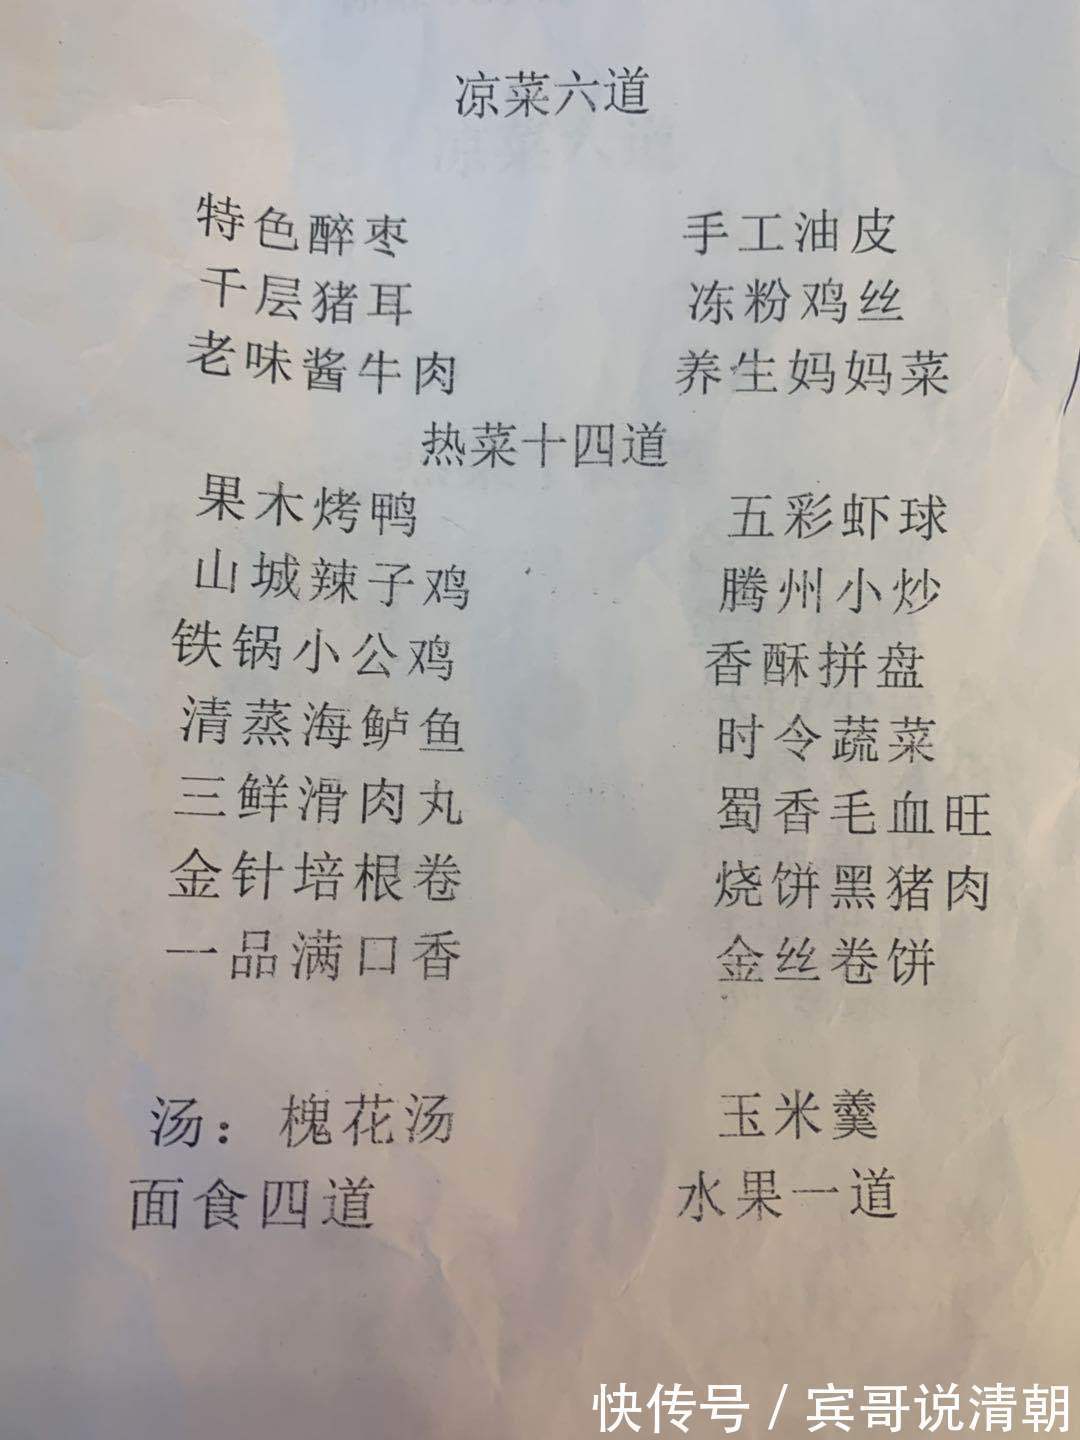 凉菜六道
特色醉枣 手工油皮
千层猪耳 冻粉鸡丝
老味酱牛肉 养生妈妈菜
热菜十四道
果木烤鸭 五彩虾球
山城辣子鸡 腾州小炒
铁锅小公鸡 香酥拼盘
清蒸海鲈鱼 时令蔬菜
三鲜滑肉丸 蜀香毛血旺
金针培根卷 烧饼黑猪肉
一品满口香 金丝卷饼
汤：槐花汤 玉米羹
面食四道 水果一道
快传号 / 宾哥说清朝